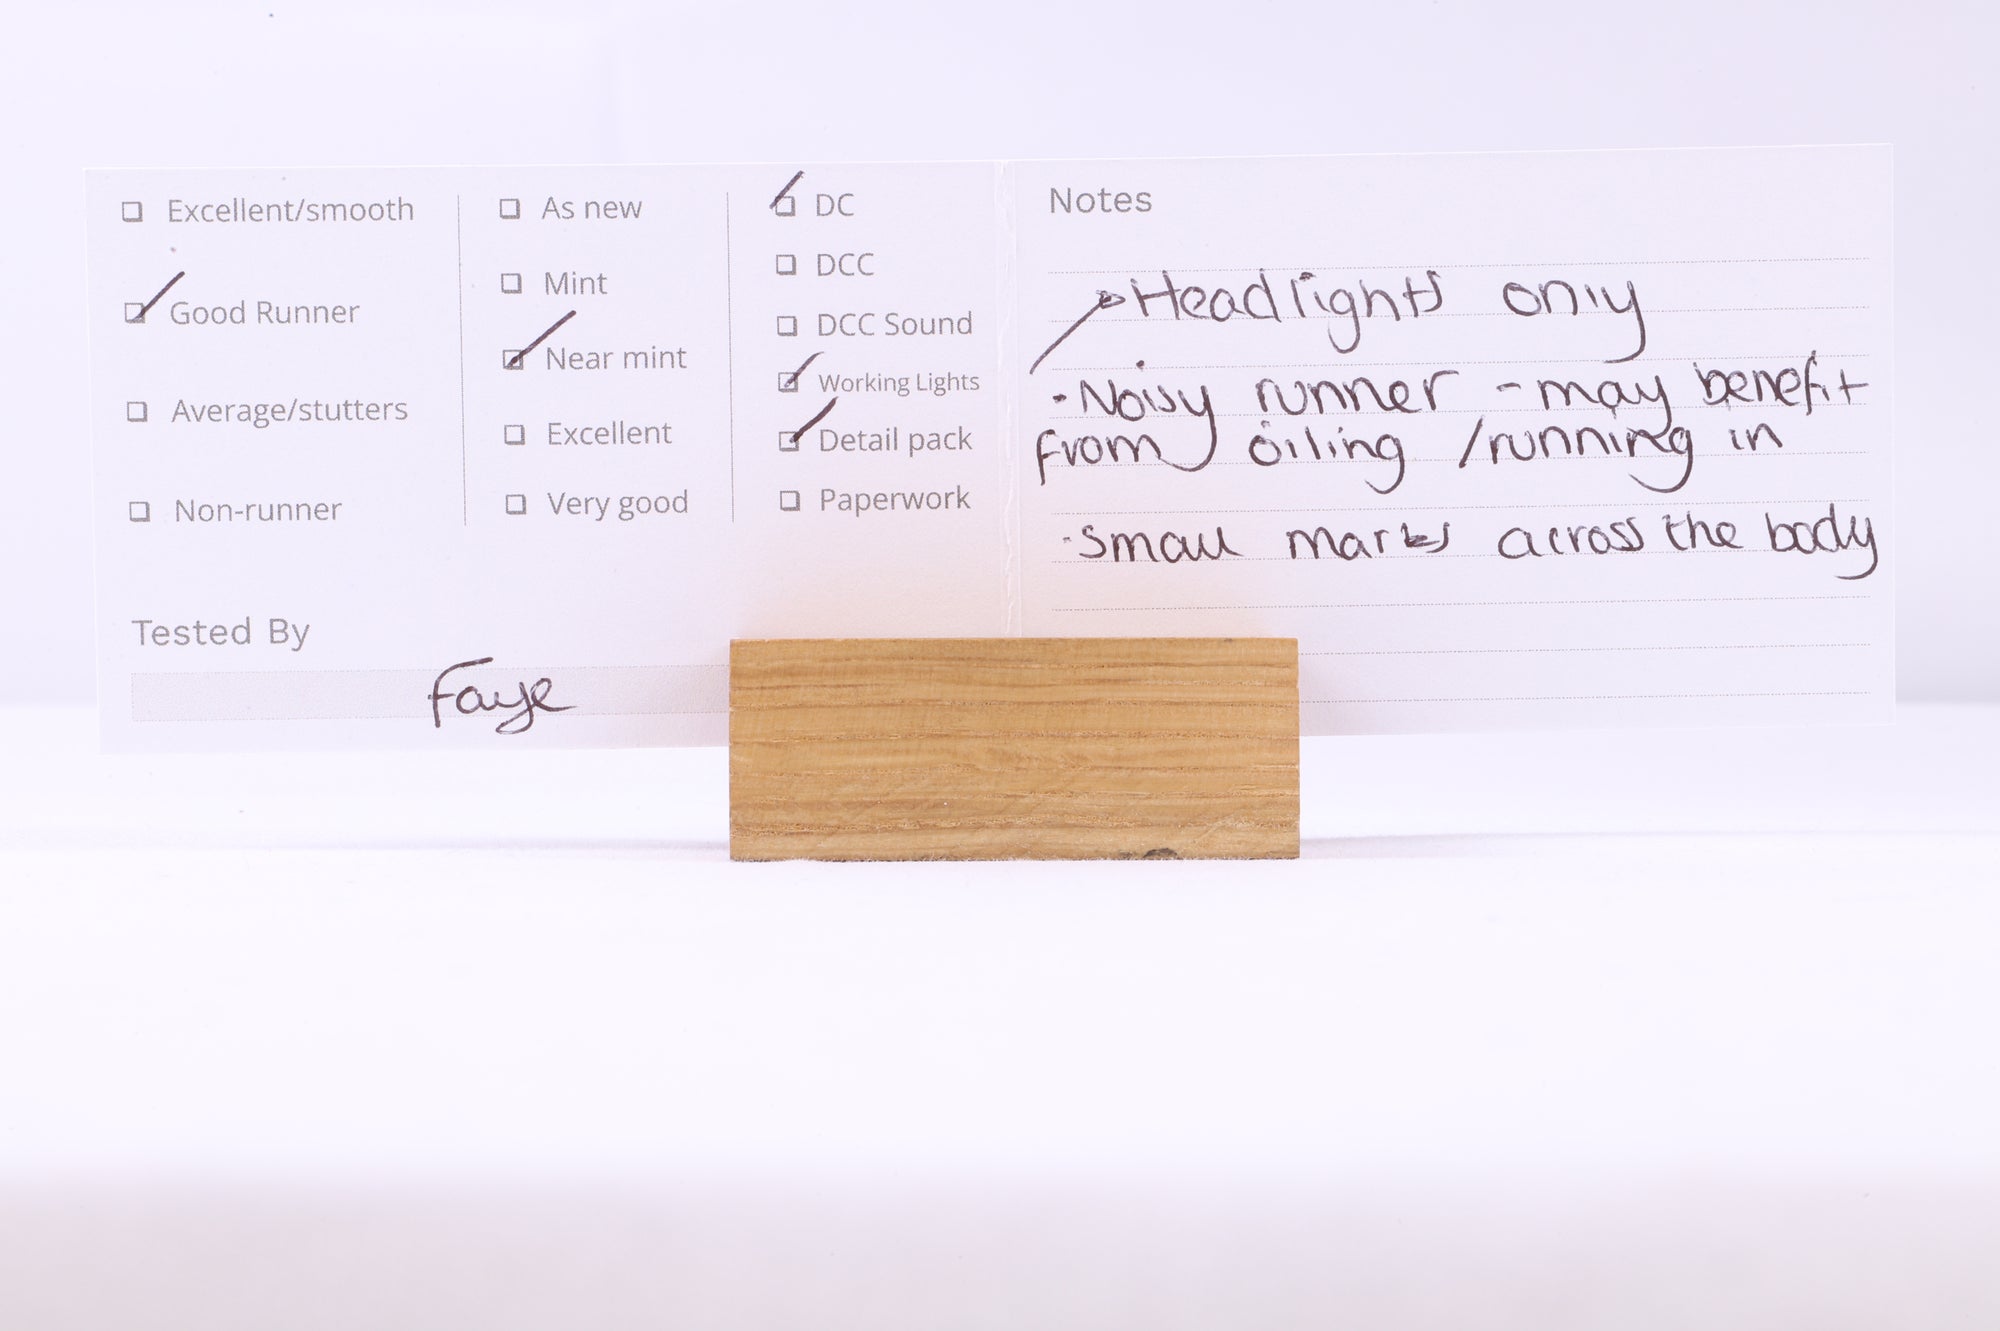 Excellent/smooth
Good Runner
Average/stutters
Non-runner
As new
Mint
Near mint
Excellent
Very good
DC
DCC
DCC Sound
Working Lights
Detail pack
Paperwork
Tested By
Faye
Notes
Headlights only
- Noisy runner - may benefit
from oiling / running in
- Small marks across the body